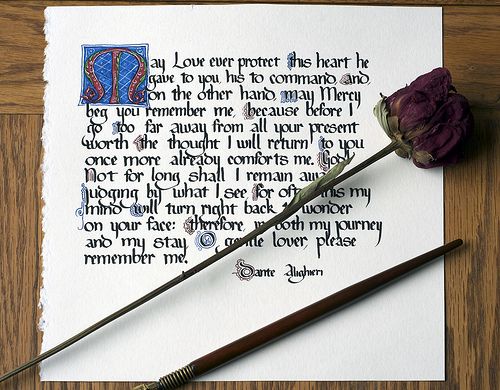 May Love ever protect this heart he
gave to you, his to command, and,
on the other hand, may Mercy
beg you remember me, because before I
go too far away from all your present
worth the thought I will return to you
once more already comforts me. God,
Not for long shall I remain
judging by what I see, for often this my
mind will turn right back to wonder
on your face: therefore, both my journey
and my stay, O gentle lover, please
remember me.
Dante Alighieri